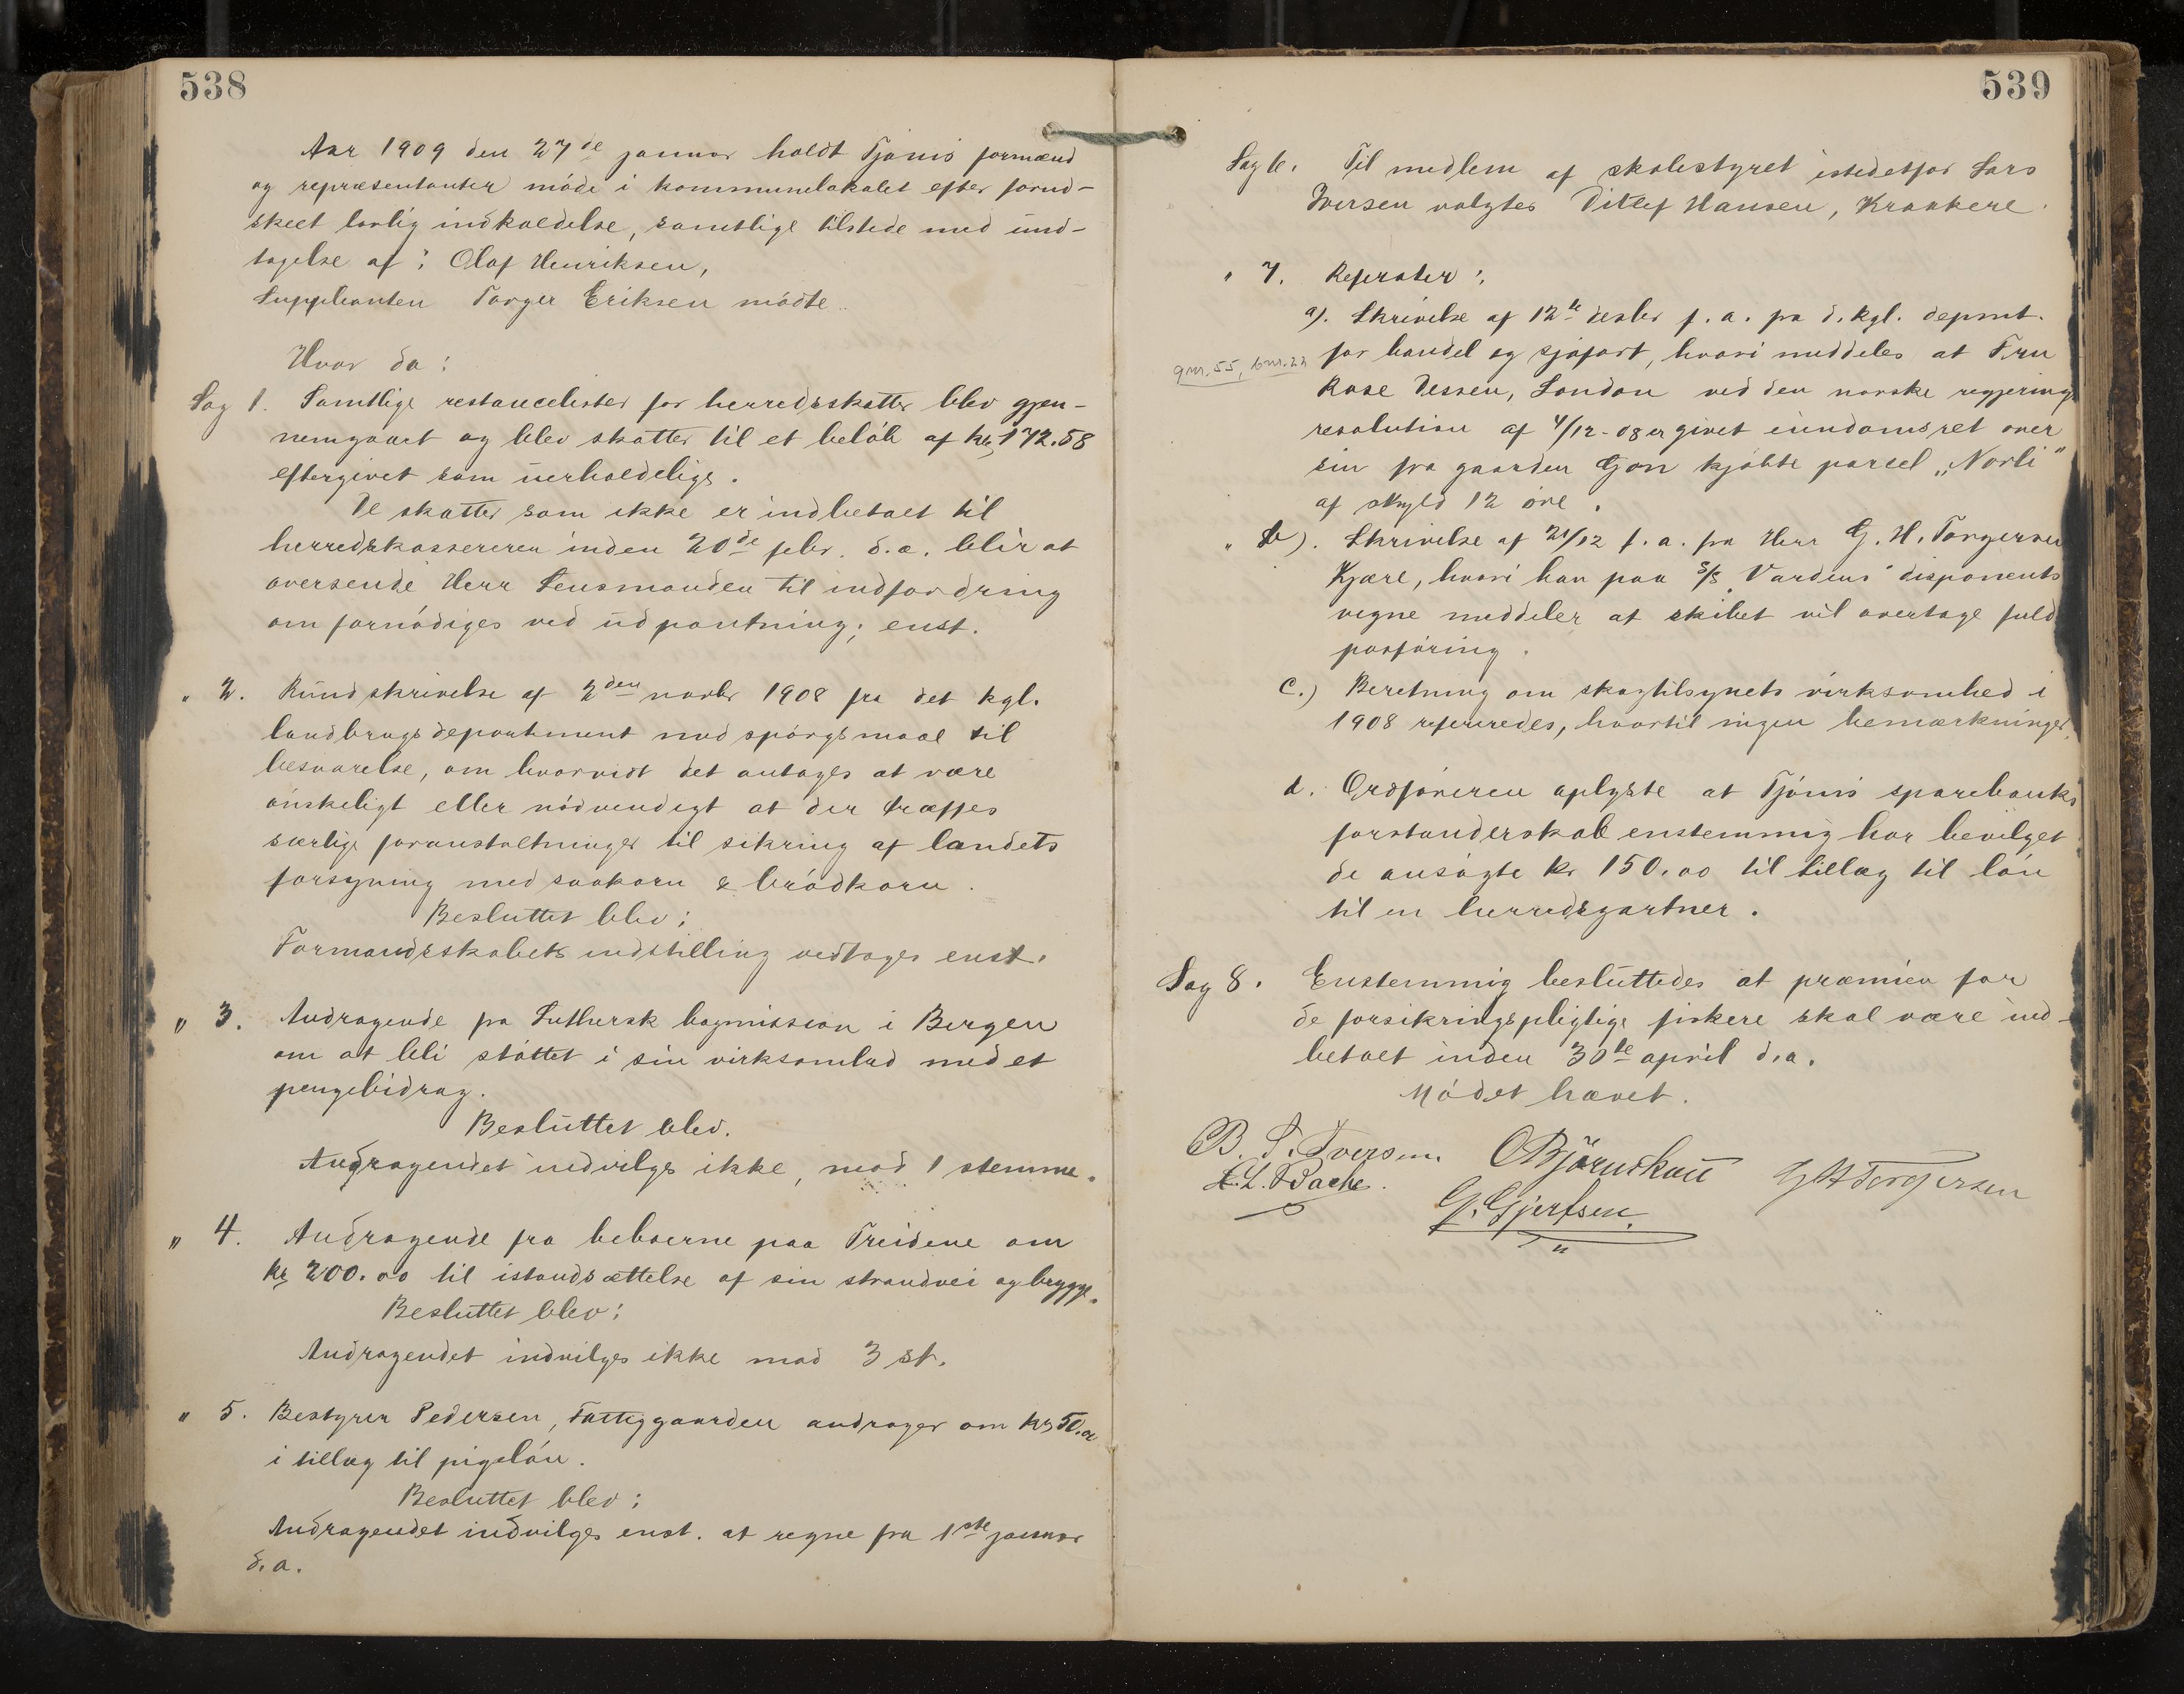 538
Aar 1909 den 27de januar holdt Tjømø formænd
og repræsentanter møde i kommunelokalet efter forud-
skeet lovlig indkaldelse, samtlige tilstede med und-
tagelse af: Olaf Henriksen,
Suppleanten Torger Eriksen mødte.
Hvor da:
Sag 1. Samtlige restancelister for herredsskatter blev gjen-
nemgaaet og blev skatter til et beløb af kr 172.58
eftergivet som uerholdelige.
De skatter som ikke er indbetalt til
herredskassereren inden 20de febr. d.a. blir at
oversende Herr Lensmanden til indfordring
om fornødiges ved udpantning; enst.
" 2. Rundskrivelse af 2den novbr 1908 fra det kgl.
landbrugsdepartement med spørgsmaal til
besvarelse, om hvorvidt det antages at være
ønskeligt eller nødvendigt at der træffes
særlige foranstaltninger til sikring af landets
forsyning med saakorn & brødkorn.
Besluttet blev:
Formandskabets indstilling vedtages enst.
" 3. Andragende fra Luthersk bogmission i Bergen
om at bli støttet i sin virksomhed med et
pengebidrag.
Besluttet blev.
Andragendet indvilges ikke, mod 1 stemme.
" 4. Andragende fra beboerne paa Treidene om
kr 200.00 til istandsættelse af sin strandvei og brygge.
Besluttet blev:
Andragendet indvilges ikke mod 3 st.
" 5. Bestyrer Pedersen, Fattiggaarden andrager om kr 50.00
i tillæg til pigeløn.
Besluttet blev:
Andragendet indvilges enst. at regne fra 1ste januar
d.a.
539
Sag 6. Til medlem af skolestyret istedetfor Lars
Iversen valgtes Ditlef Hansen, Kraakere.
" 7. Referater:
a). Skrivelse af 12te desbr f.a. fra d. kgl. depmt.
for handel og sjøfart, hvori meddeles at Fru
gnr. 55, bnr. 22
Rose Dessen, London ved den norske regjerings
resolution af 4/12-08 er givet eiendomsret over
sin fra gaarden Gjon kjøbte parcel „Norli"
af skyld 12 øre.
" b). Skrivelse af 21/12 f.a. fra Herr G. H. Torgersen
Kjære, hvori han paa S/S „Vardens" disponents
vegne meddeler at skibet vil overtage fuld
postføring.
c.) Beretning om skogtilsynets virksomhed i
1908 refereredes, hvortil ingen bemærkninger.
d. Ordføreren oplyste at Tjømø sparebanks
forstanderskab enstemmig har bevilget
de ansøgte kr 150.00 til tillæg til løn
til en herredsgartner.
Sag 8. Enstemmig besluttedes at præmien for
de forsikringspligtige fiskere skal være ind-
betalt inden 30te april d.a.
Mødet hævet.
B. S. Iversen. O Bjørnskau G H Torgersen
L. Bache.
G. Gjertsen.